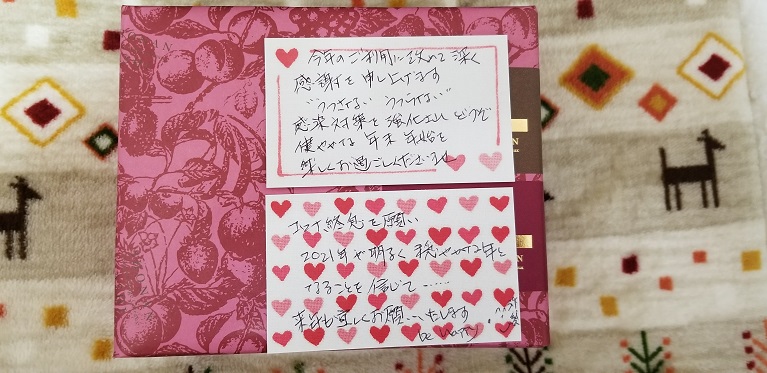 今年のご利用に改めて深く
感謝を申し上げます
"うつさない うつらない"
感染対策を強化され どうぞ
健やかな 年末 年始を
楽しくお過ごしくださいませ
コロナ終息を願い
2021年が明るく 穏やかな年と
なることを信じて……
来年も宜しくお願いいたします
be happy
N
N